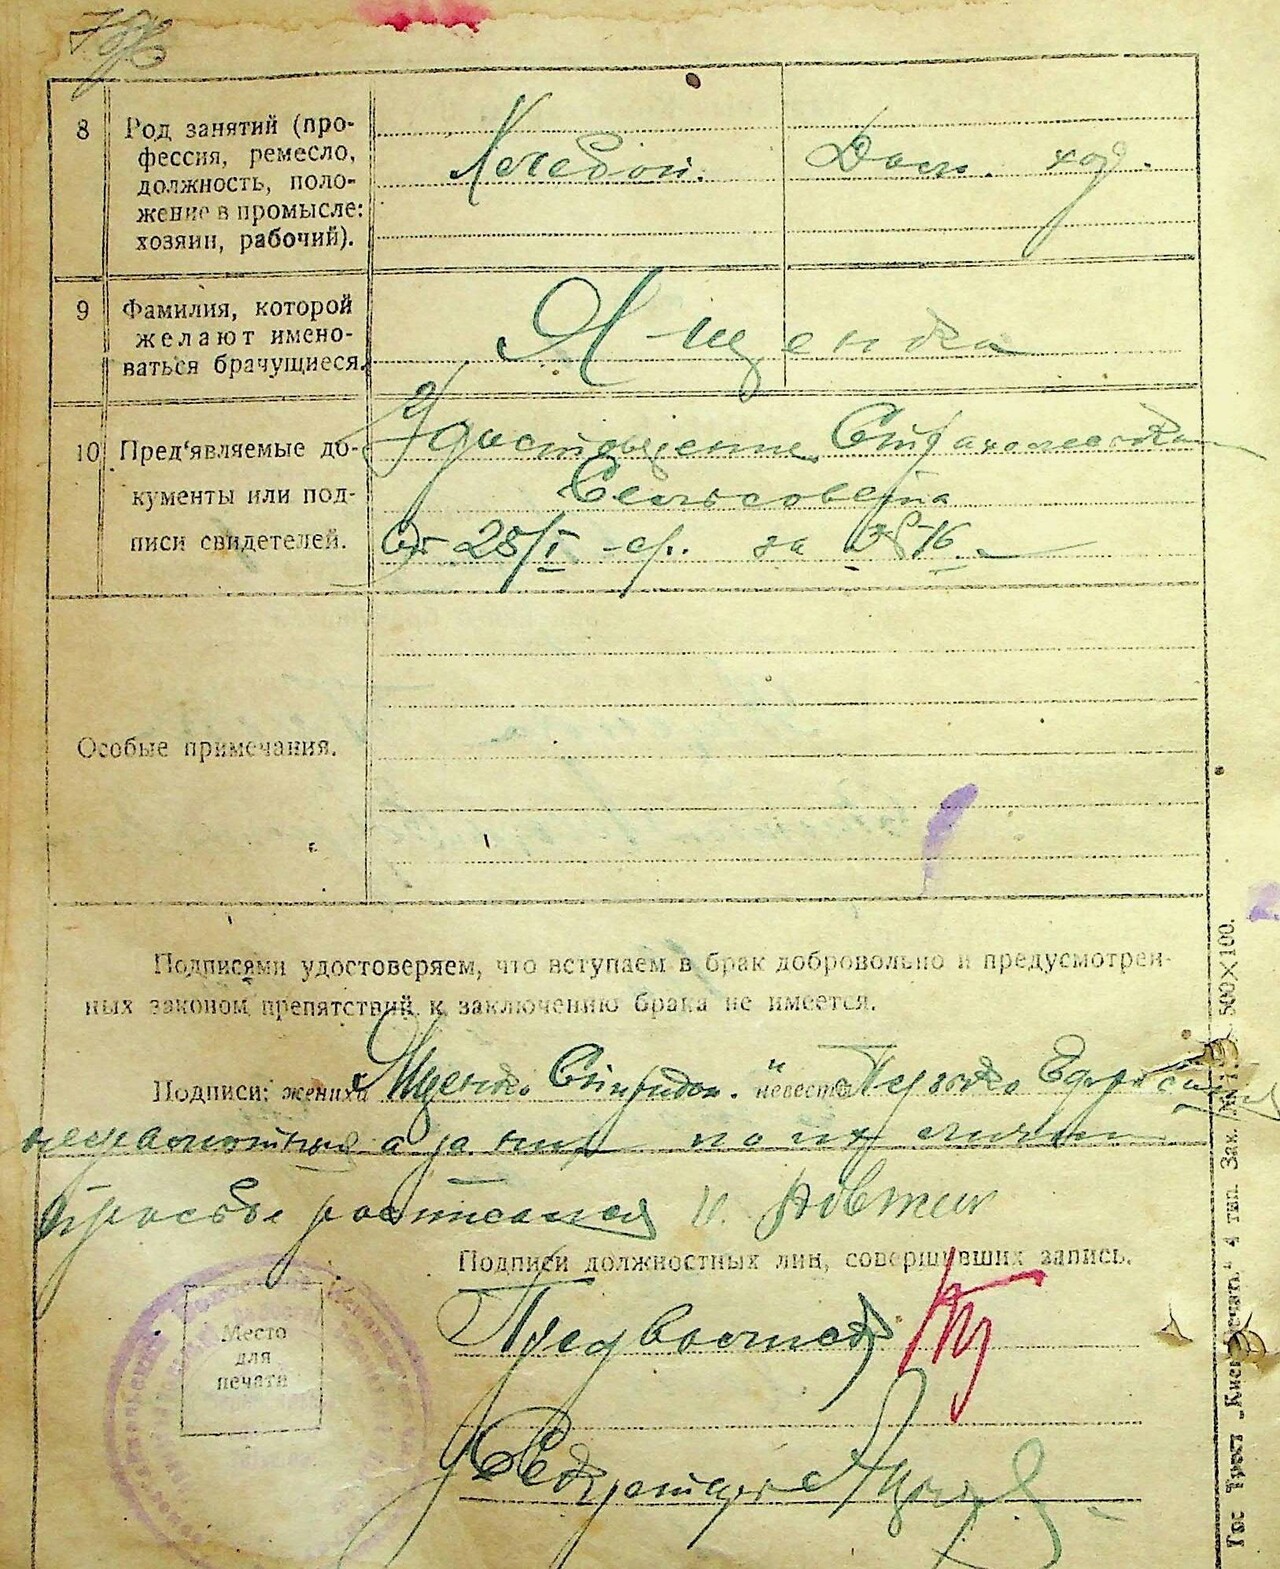 8
Род занятий (про-
фессия, ремесло,
должность, поло-
жение в промысле:
хозяин, рабочий).
Хлебоп.
Дом. хоз.
9
Фамилия, которой
желают имено-
ваться брачущиеся.
Ященко
10
Пред'являемые до-
кументы или под-
писи свидетелей.
Удостоверение
Сельсовета
От 25/I - с/г. за №
Особые примечания.
Подписями удостоверяем, что вступаем в брак добровольно и предусмотрен-
ных законом препятствий к заключению брака не имеется.
Подписи: жениха Ященко Спиридон. и невесты
неграмотные а за них по их личной
просьбе расписался
Подписи должностных лиц, совершивших запись.
Место
для
печати
Секретарь
Гос Трест „Киев-Печать“ 4 тип. Зак. 500×100.